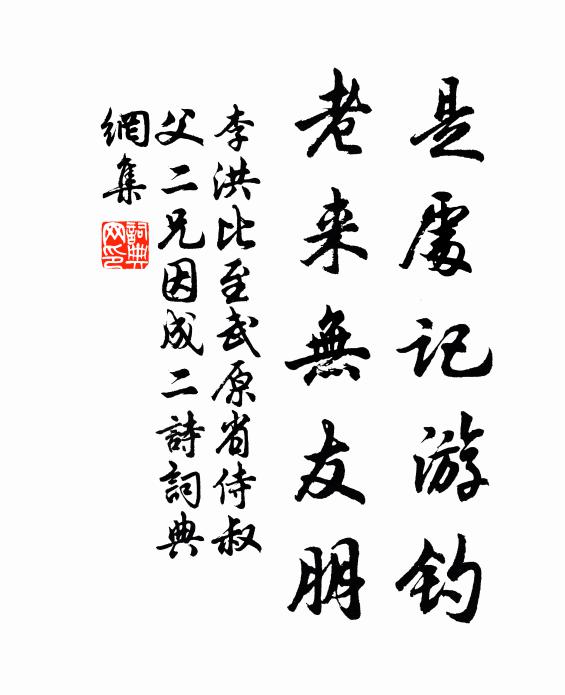 是處記游釣
老来無友朋
李洪比至武原省侍叔
父二兄因成二詩詞典
網集
詞典网印